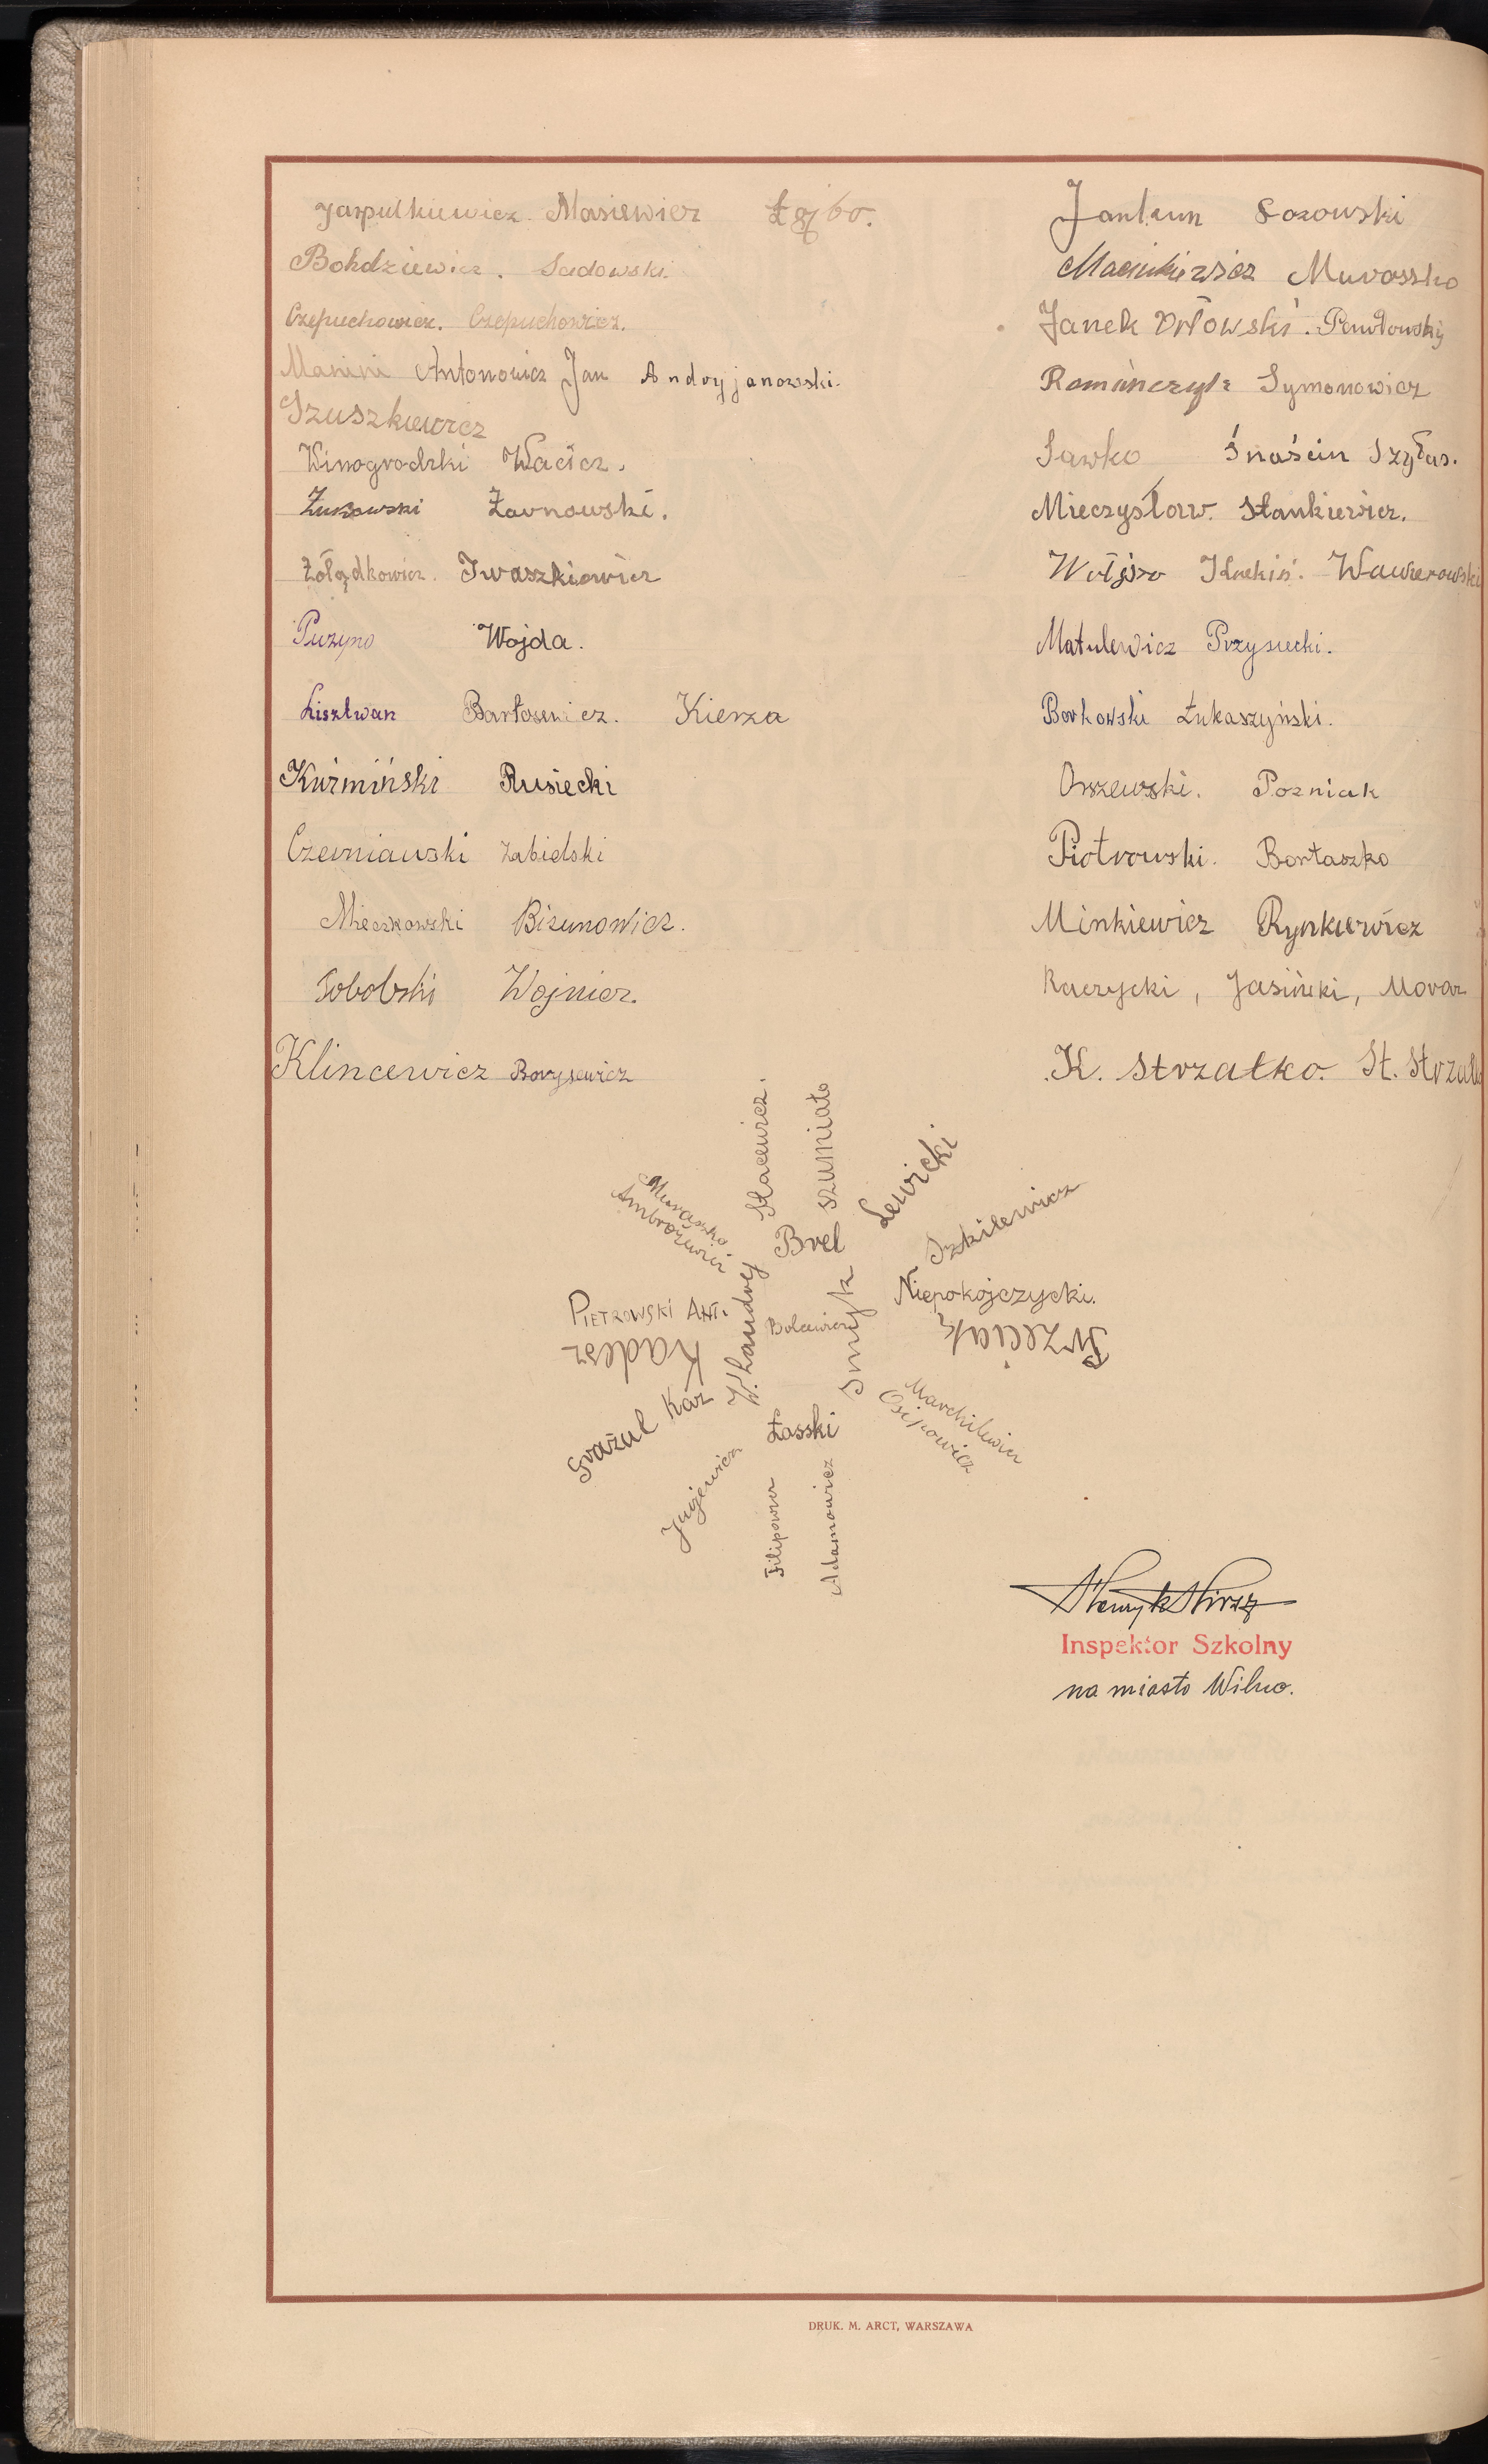 Jaspulkiewicz. Masiewicz Łejbo.
Bohdziewicz. Sadowski
Czepuchowicz. Czepuchowicz.
Manini Antonowicz Jan Andryjanowski.
Szuszkiewicz
Winogrodzki Wacicz.
Żukowski Żarnowski.
Żołądkowicz. Iwaszkiewicz
Puzyno Wojda.
Lisztwan Bartosewicz. Kierza
Kuźmiński Rusiecki
Czerniawski Zabielski
Mieczkowski Bizunowicz.
Sobolski Wojnicz.
Klincewicz Borysewicz
Jankun Sozowski
Macinkiewicz Muraszko
Janek Orłowski. Pawłowski
Romańczyk Symonowicz
Sawko Szyłas.
Mieczysław. Stankiewicz.
Wawierowski
Matulewicz Przysiecki.
Borkowski Łukaszyński.
Orszewski. Pozniak
Piotrowski. Bortaszko
Minkiewicz Rynkiewicz
Raczycki, Jasiński, Moraz
K. Strzałko. St. Strzałko
Stacewicz.
Szuniało
Lewicki
Szkilewicz
Muraszko
Ambrożewicz
Brel
Niepokojczycki.
Pietrowski Ant.
W. Landrej
Bolcewicz
Smyk
Trzeciak
Kadesz
Grażul Kaz
Łasski
Marchilewicz
Osipowicz
Filipowicz
Adamowicz
Henryk Hirsz
Inspektor Szkolny
na miasto Wilno.
DRUK. M. ARCT, WARSZAWA